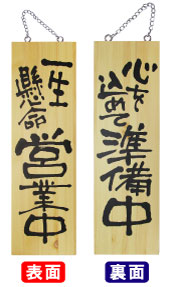 一生
懸命
営業中
心を
込めて
準備中
表面
裏面